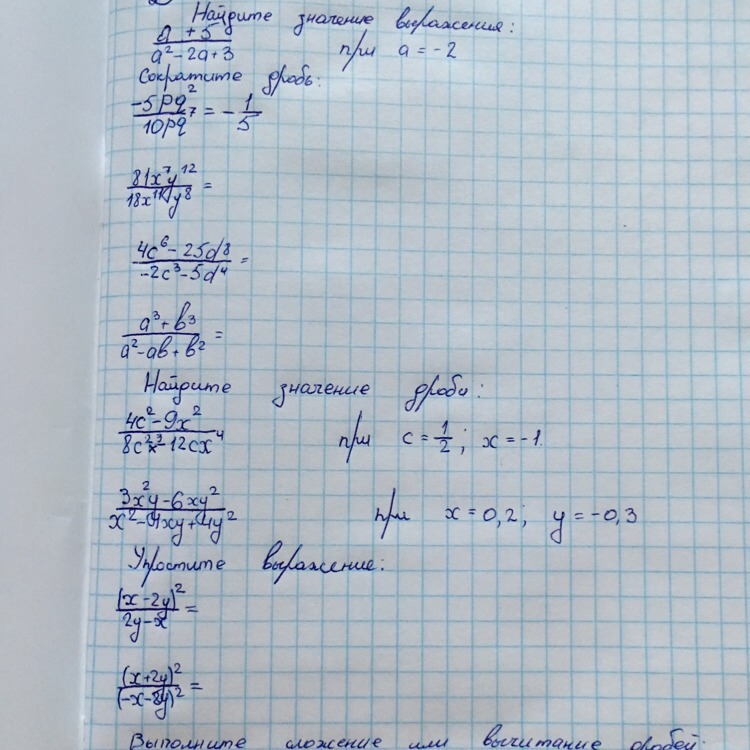 Найдите значение выражения:
(a + 5)/(a² - 2a + 3) при a = -2
Сократите дробь:
(-5pq²)/(10pq⁷) = -1/5
(81x⁷y¹²)/(18x¹¹y⁸) =
(4c⁶ - 25d⁸)/(-2c³ - 5d⁴) =
(a³ + b³)/(a² - ab + b²) =
Найдите значение дроби:
(4c² - 9x²)/(8c²x³ - 12cx⁴) при c = 1/2; x = -1.
(3x²y - 6xy²)/(x² - 4xy + 4y²) при x = 0,2; y = -0,3
Упростите выражение:
(x - 2y)²/(2y - x) =
(x + 2y)²/(-x - 2y)² =
Выполните сложение или вычитание дробей: